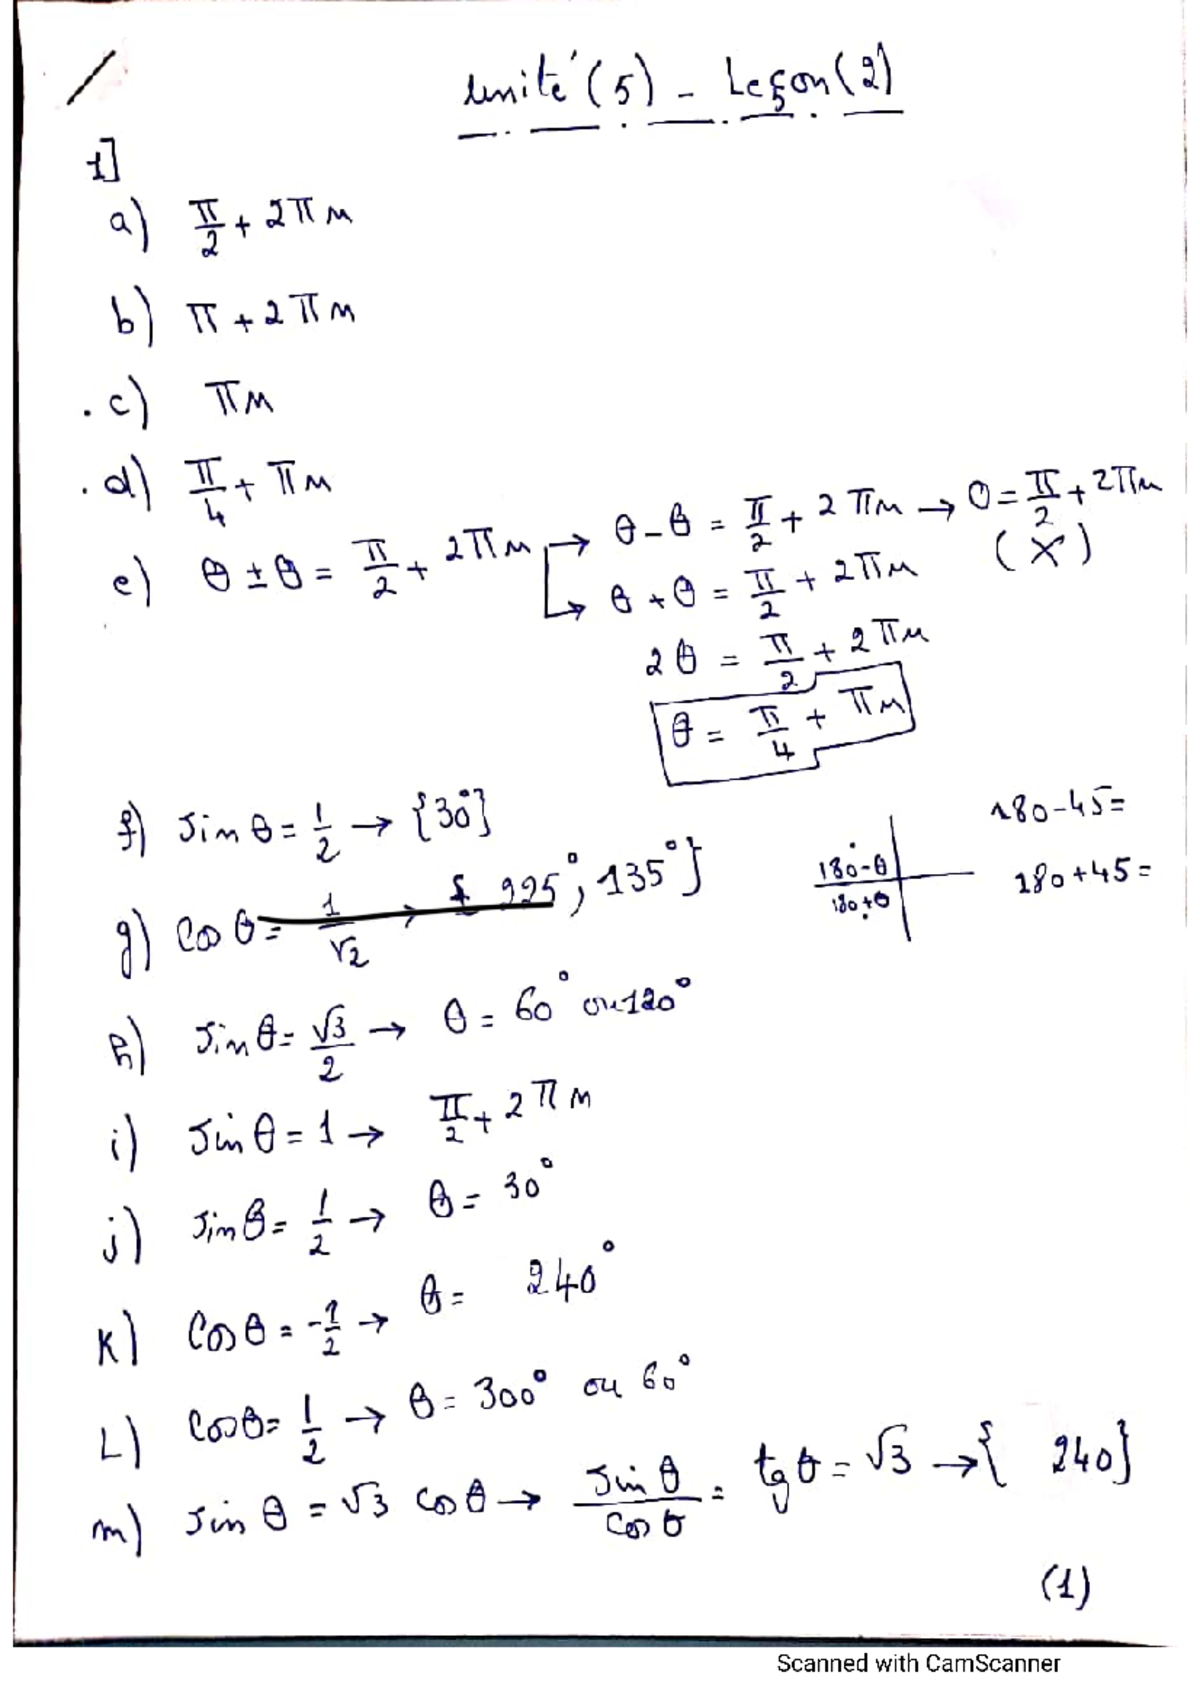 unité (5) - Leçon (2)
1]
a) π/2 + 2πn
b) π + 2πn
. c) πn
. d) π/4 + πn
e) θ ± θ = π/2 + 2πn → θ - θ = π/2 + 2πn → θ = π/2 + 2πn
(X)
→ θ + θ = π/2 + 2πn
2θ = π/2 + 2πn
θ = π/4 + πn
f) sin θ = 1/2 → {30°}
180-45=
g) cos θ = 1/√2 → { 225°, 135°}
180°-θ
180+θ
180+45=
h) sin θ = √3/2 → θ = 60° ou 120°
i) sin θ = 1 → π/2 + 2πn
j) sin θ = 1/2 → θ = 30°
K) cos θ = -1/2 → θ = 240°
L) cos θ = 1/2 → θ = 300° ou 60°
m) sin θ = √3 cos θ → sin θ/cos θ = tg θ = √3 → { 240}
(1)
Scanned with CamScanner